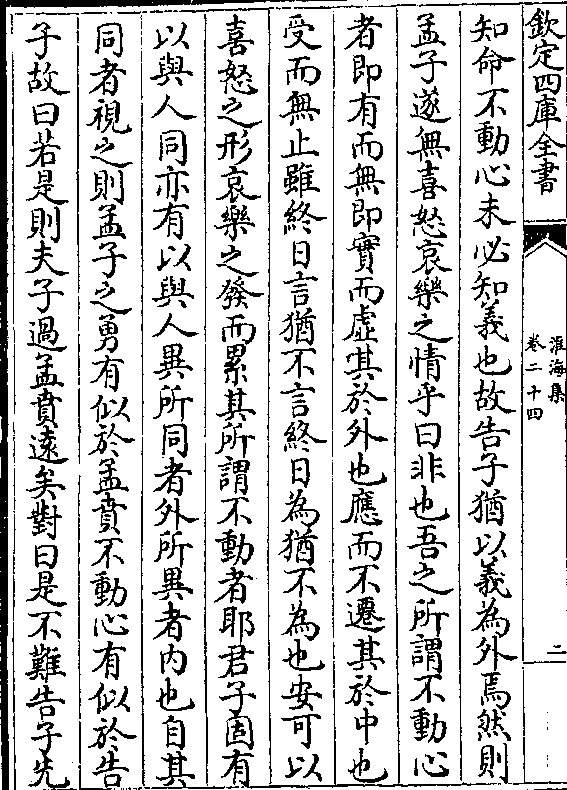 欽定四庫全書
淮海集
卷二十四
二
知命不動心未必知義也故告子猶以義為外焉然則
孟子遂無喜怒哀樂之情乎曰非也吾之所謂不動心
者即有而無即實而虛其於外也應而不遷其於中也
受而無止雖終日言猶不言終日為猶不為也安可以
喜怒之形哀樂之發而累其所謂不動者耶君子固有
以與人同亦有以與人異所同者外所異者内也自其
同者視之則孟子之勇有似於孟賁不動心有似於告
子故曰若是則夫子過孟賁遠矣對曰是不難告子先